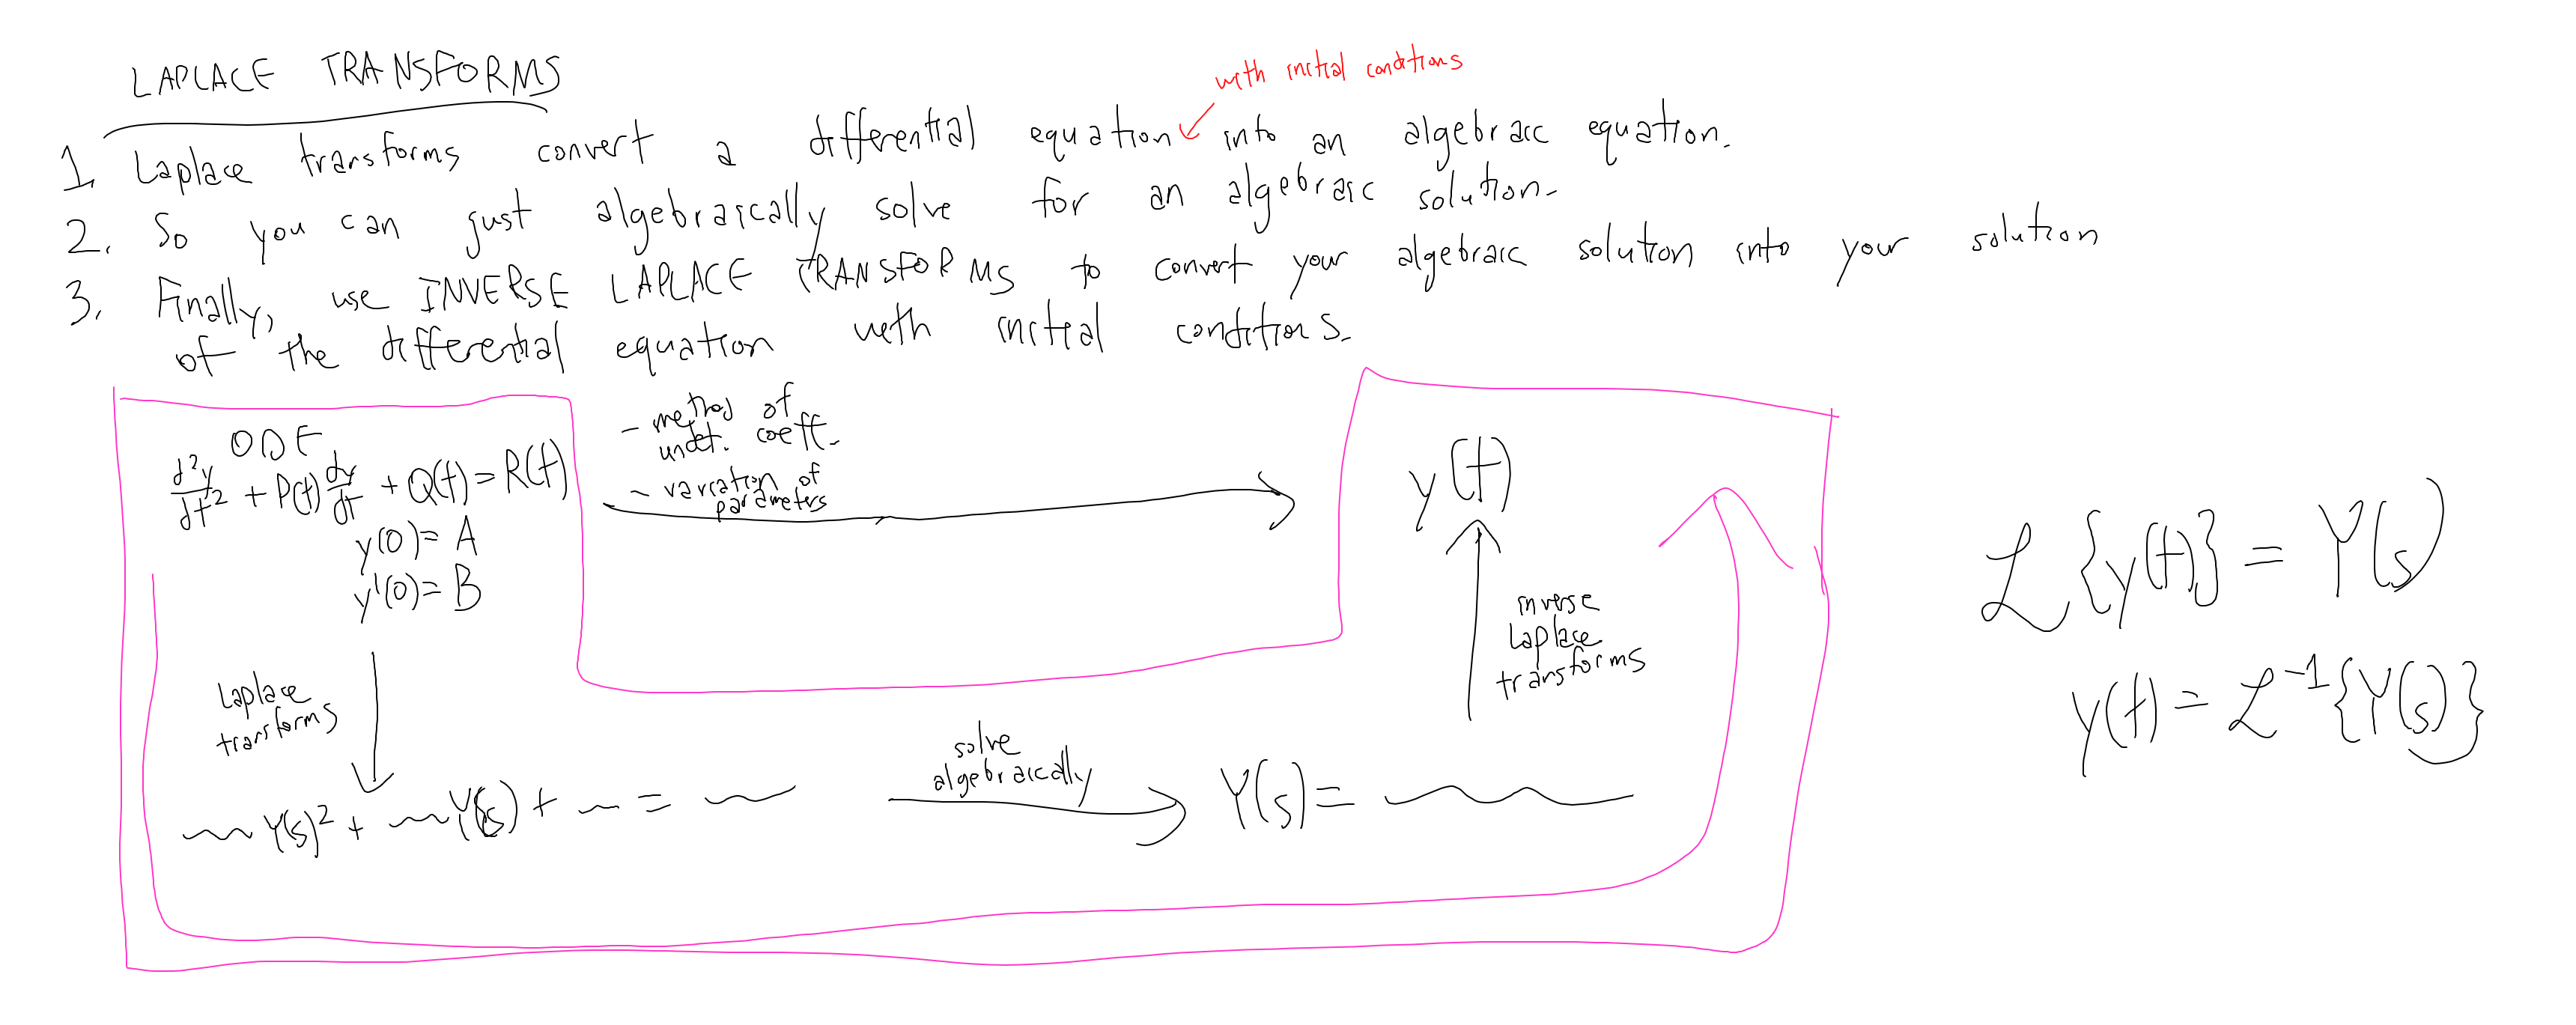 LAPLACE TRANSFORMS
with initial conditions
1. Laplace transforms convert a differential equation into an algebraic equation.
2. So you can just algebraically solve for an algebraic solution.
3. Finally, use INVERSE LAPLACE TRANSFORMS to convert your algebraic solution into your solution
of the differential equation with initial conditions.
ODE
d²y/dt² + P(t) dy/dt + Q(t) = R(t)
y(0) = A
y'(0) = B
- method of
undet. coeff.
- variation of
parameters
y(t)
Laplace
transforms
Y(s)² + Y(s) + =
solve
algebraically
Y(s) =
inverse
Laplace
transforms
ℒ{y(t)} = Y(s)
y(t) = ℒ⁻¹{Y(s)}